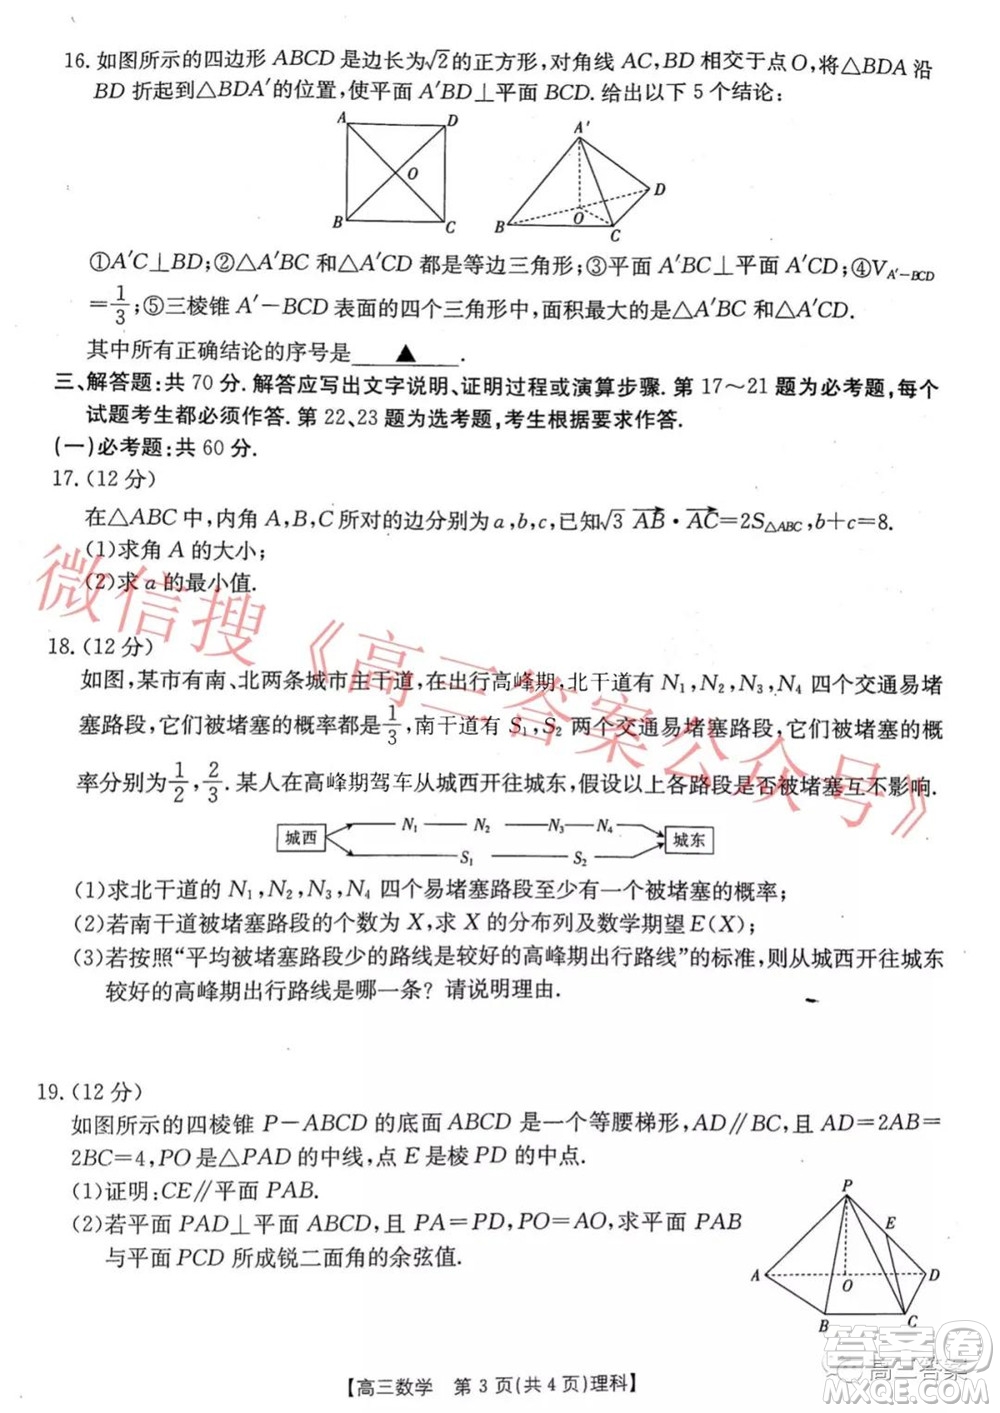 16. 如图所示的四边形 ABCD 是边长为√2的正方形，对角线 AC，BD 相交于点 O，将△BDA 沿
BD 折起到△BDA′的位置，使平面 A′BD⊥平面 BCD. 给出以下 5 个结论：
A
D
O
B
C
A′
D
B
O
C
①A′C⊥BD；②△A′BC 和△A′CD 都是等边三角形；③平面 A′BC⊥平面 A′CD；④V_{A′-BCD}
=1/3；⑤三棱锥 A′-BCD 表面的四个三角形中，面积最大的是△A′BC 和△A′CD.
其中所有正确结论的序号是 ▲ .
三、解答题：共 70 分. 解答应写出文字说明、证明过程或演算步骤. 第 17～21 题为必考题，每个
试题考生都必须作答. 第 22、23 题为选考题，考生根据要求作答.
(一)必考题：共 60 分.
17. (12 分)
在△ABC 中，内角 A，B，C 所对的边分别为 a，b，c，已知√3 AB·AC=2S△ABC，b+c=8.
(1)求角 A 的大小；
(2)求 a 的最小值.
微信搜《高三答案公众号》
18. (12 分)
如图，某市有南、北两条城市主干道，在出行高峰期，北干道有 N₁，N₂，N₃，N₄ 四个交通易堵
塞路段，它们被堵塞的概率都是1/3，南干道有 S₁，S₂ 两个交通易堵塞路段，它们被堵塞的概
率分别为1/2，2/3. 某人在高峰期驾车从城西开往城东，假设以上各路段是否被堵塞互不影响.
城西
N₁ N₂ N₃ N₄
城东
S₁ S₂
(1)求北干道的 N₁，N₂，N₃，N₄ 四个易堵塞路段至少有一个被堵塞的概率；
(2)若南干道被堵塞路段的个数为 X，求 X 的分布列及数学期望 E(X)；
(3)若按照“平均被堵塞路段少的路线是较好的高峰期出行路线”的标准，则从城西开往城东
较好的高峰期出行路线是哪一条？请说明理由.
19. (12 分)
如图所示的四棱锥 P-ABCD 的底面 ABCD 是一个等腰梯形，AD∥BC，且 AD=2AB=
2BC=4，PO 是△PAD 的中线，点 E 是棱 PD 的中点.
(1)证明：CE∥平面 PAB.
(2)若平面 PAD⊥平面 ABCD，且 PA=PD，PO=AO，求平面 PAB
与平面 PCD 所成锐二面角的余弦值.
P
E
A
O
D
B
C
【高三数学 第 3 页(共 4 页)理科】
高三答案
答案圈
MXQE.COM